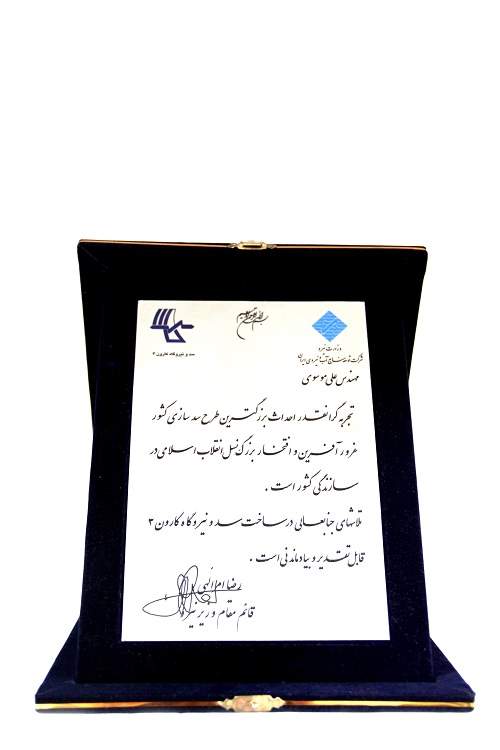 وزارت نیرو
شرکت توسعه منابع آب و نیروی ایران
سد و نیروگاه کارون ۳
مهندس علی موسوی
تجربه گرانقدر احداث بزرگترین طرح سد سازی کشور
غرور آفرین و افتخار بزرگ نسل انقلاب اسلامی در
سازندگی کشور است .
تلاشهای جنابعالی در ساخت سد و نیروگاه کارون ۳
قابل تقدیر و بیاد ماندنی است .
رضا امراللهی
قائم مقام وزیر نیرو